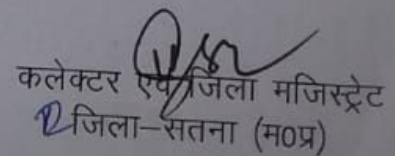 कलेक्टर एवं जिला मजिस्ट्रेट
जिला–सतना (म०प्र)